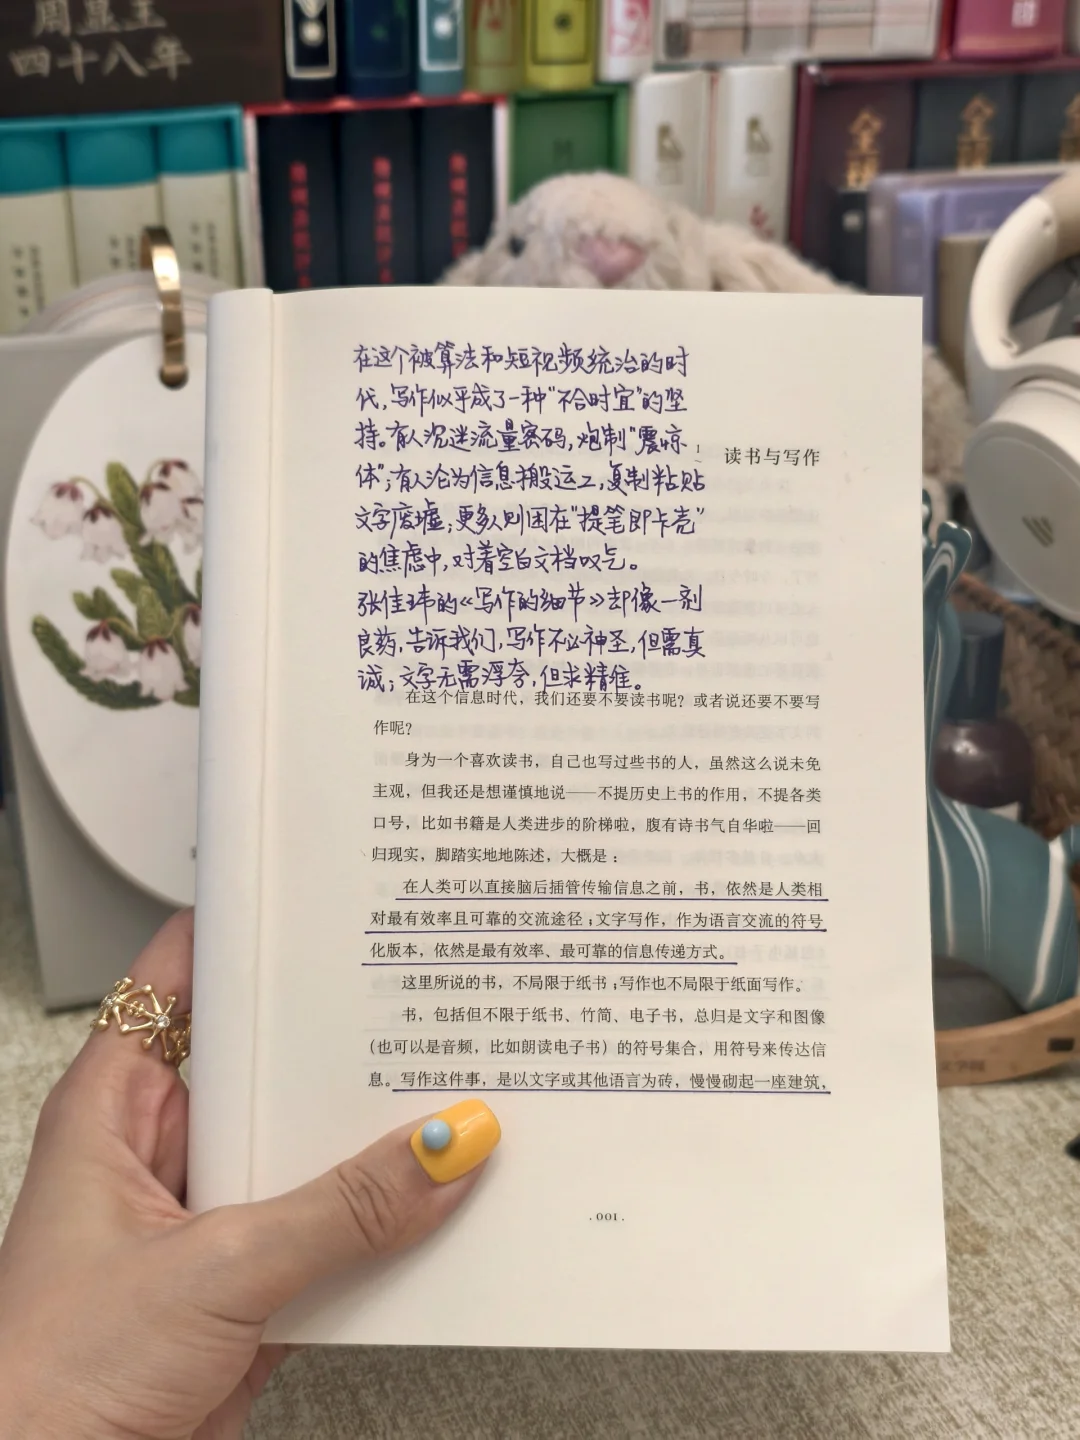 周显王
四十八年
全
全
在这个被算法和短视频统治的时
代,写作似乎成了一种"不合时宜"的坚
持。有人沉迷流量密码,炮制"震惊
体";有人沦为信息搬运工,复制粘贴
文字废墟;更多人则困在"提笔即卡壳"
的焦虑中,对着空白文档叹气。
张佳玮的《写作的细节》却像一剂
良药,告诉我们,写作不必神圣,但需真
诚;文字无需浮夸,但求精准。
1 读书与写作
在这个信息时代,我们还要不要读书呢?或者说还要不要写
作呢?
身为一个喜欢读书,自己也写过些书的人,虽然这么说未免
主观,但我还是想谨慎地说——不提历史上书的作用,不提各类
口号,比如书籍是人类进步的阶梯啦,腹有诗书气自华啦——回
归现实,脚踏实地地陈述,大概是:
在人类可以直接脑后插管传输信息之前,书,依然是人类相
对最有效率且可靠的交流途径;文字写作,作为语言交流的符号
化版本,依然是最有效率、最可靠的信息传递方式。
这里所说的书,不局限于纸书;写作也不局限于纸面写作。
书,包括但不限于纸书、竹简、电子书,总归是文字和图像
(也可以是音频,比如朗读电子书)的符号集合,用符号来传达信
息。写作这件事,是以文字或其他语言为砖,慢慢砌起一座建筑,
. 001 .